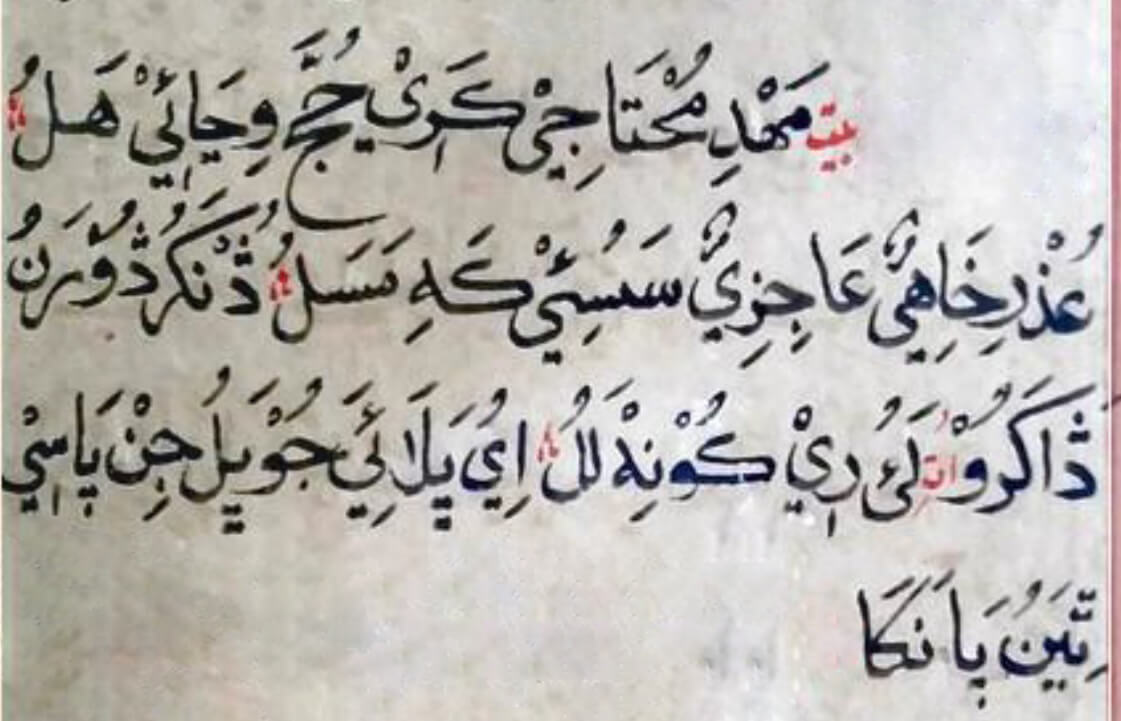 بيت مَهَدِ مُحْتَاجِيْ كَرِيْ حُجَّ وِڃَائِيْ هَلُ
عُذْرِخَاهِيْ عَاجِزِيْ سَسُئِيْ كَهِ مَسَلُ ڎُنْكَرُ ڎُوْرَنُ
ڎَاكَرُوْ ات لَئُ رِيْ كُوْنِهْ لَلُ اِيُ پَلَائِيَ جُوْ پَلُ جِنْ پَاسِيْ
تِيَنُ پَانَكَا